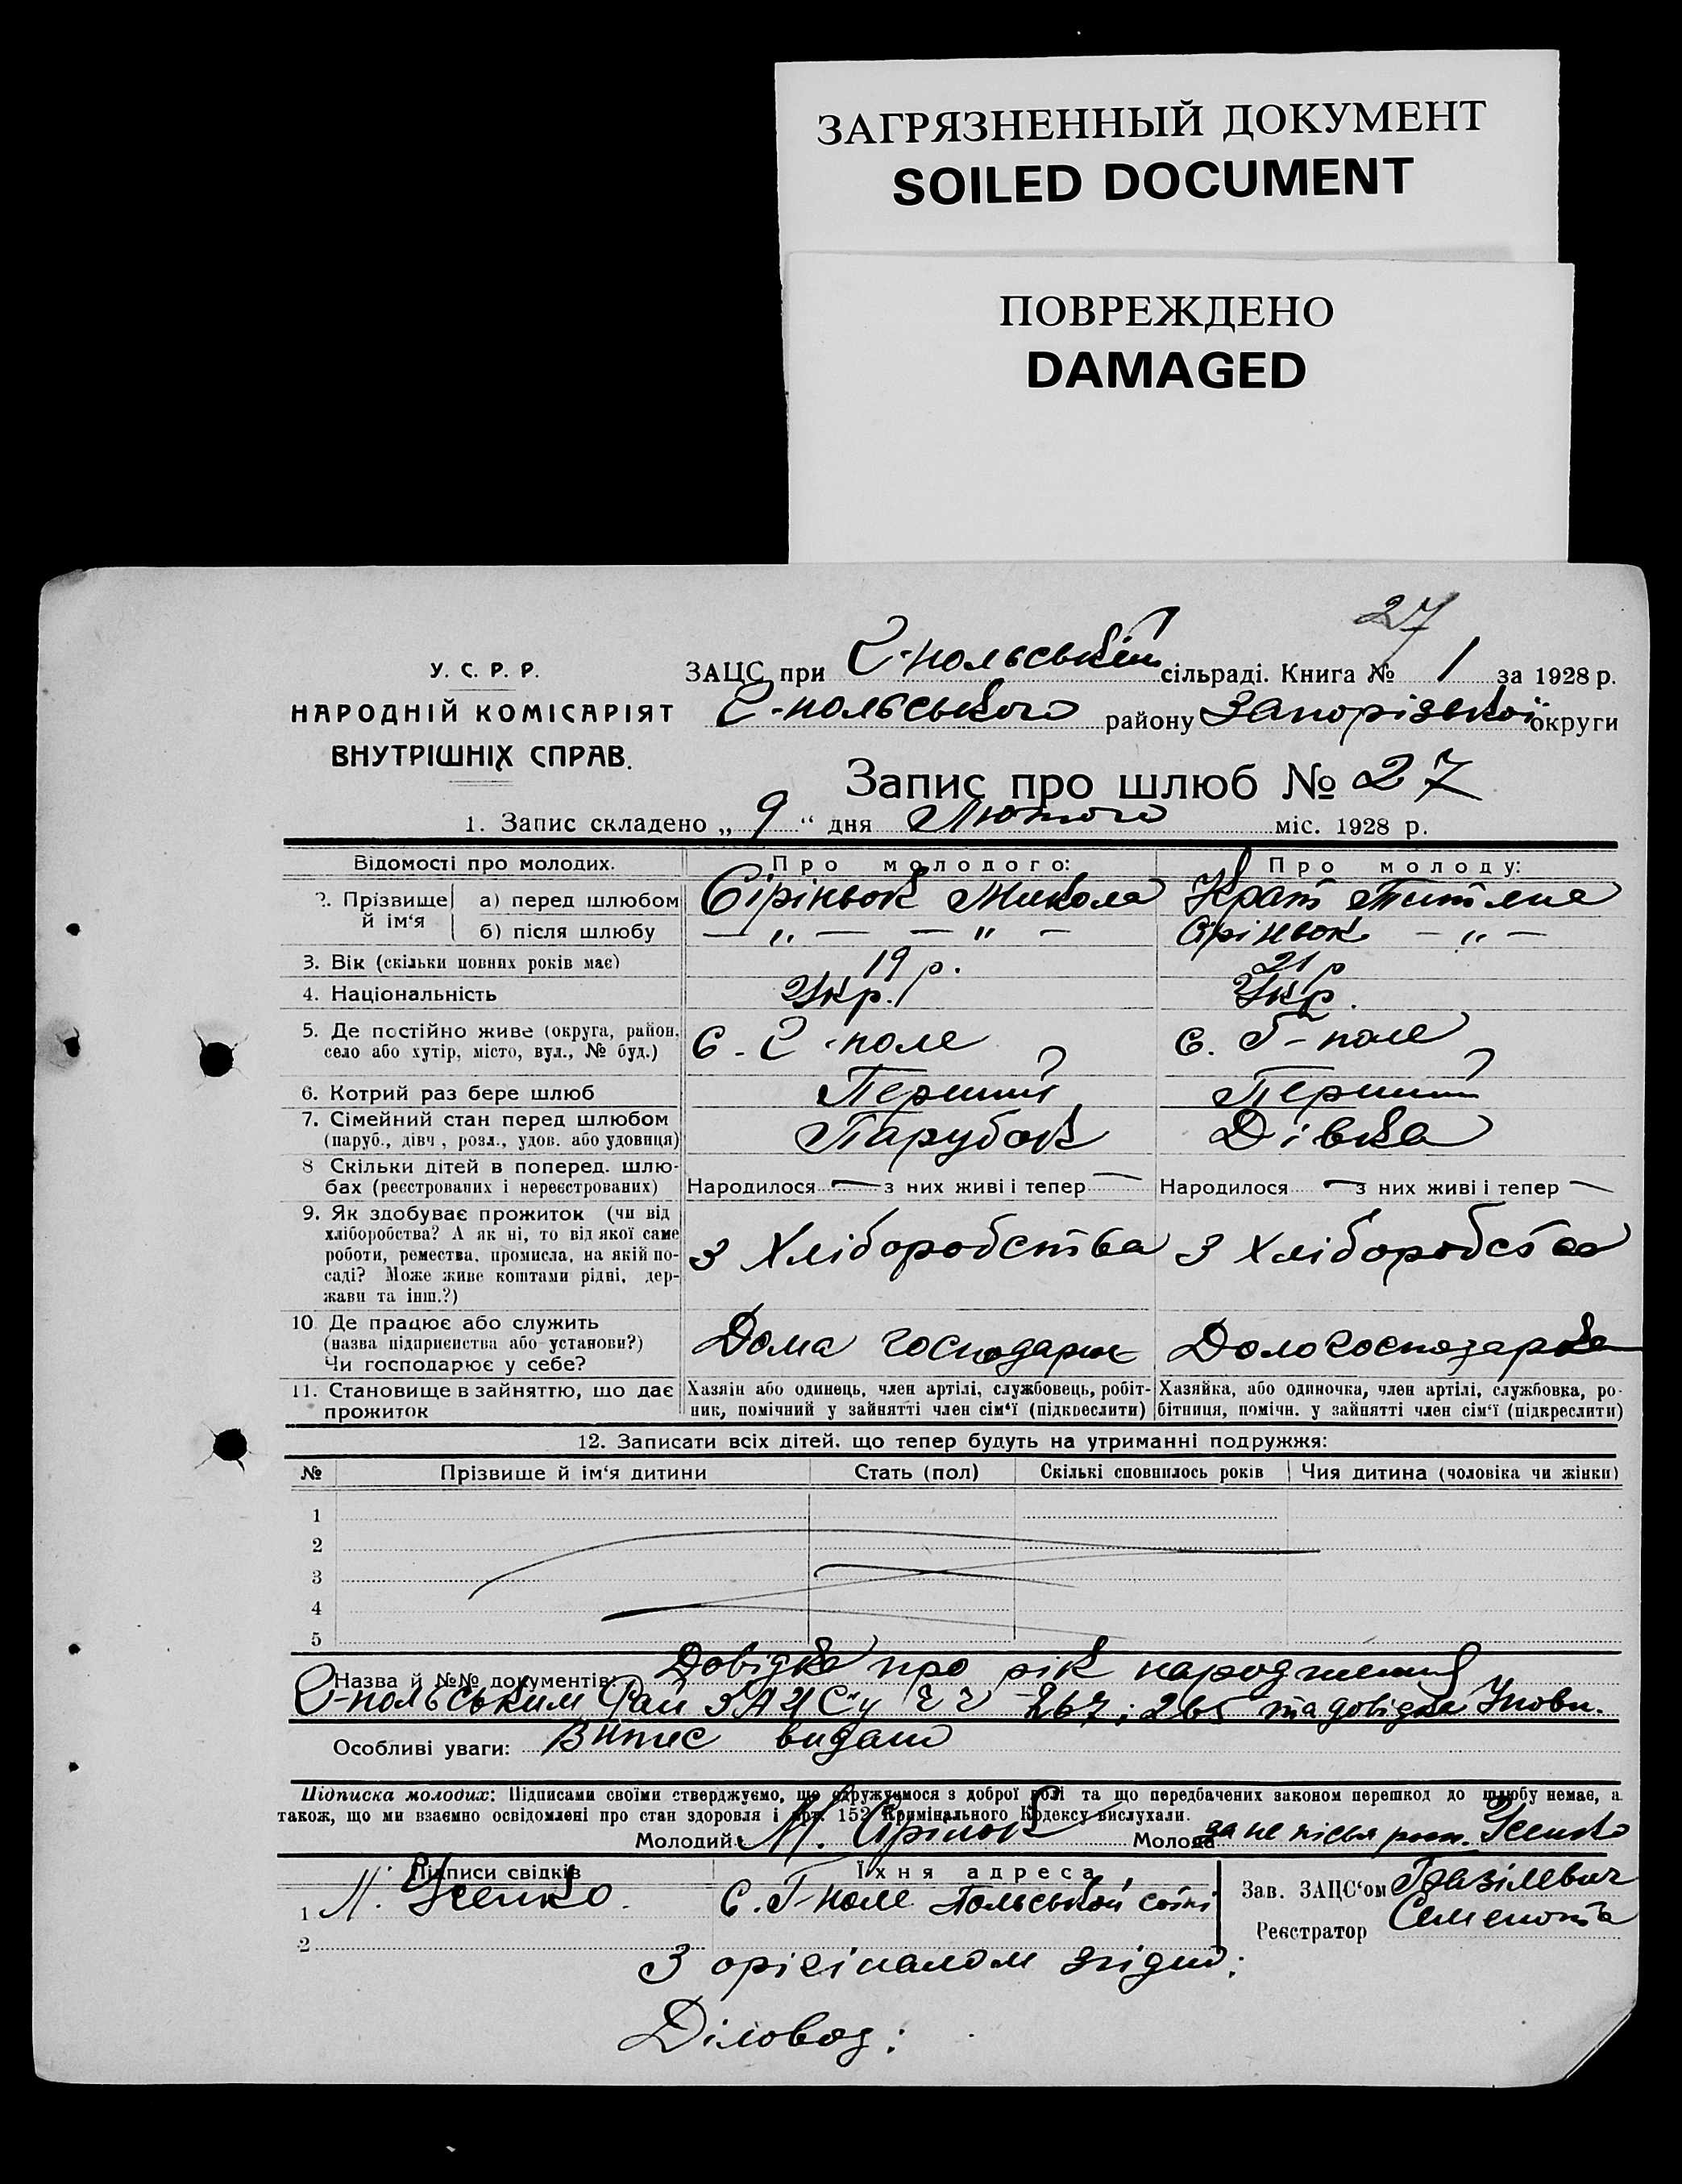 ЗАГРЯЗНЕННЫЙ ДОКУМЕНТ
SOILED DOCUMENT
ПОВРЕЖДЕНО
DAMAGED
27
У. С. Р. Р.
НАРОДНІЙ КОМІСАРІЯТ
ВНУТРІШНІХ СПРАВ.
ЗАЦС при Г-польській сільраді. Книга № 1 за 1928 р.
Г-польського району Запорізької округи
Запис про шлюб № 27
1. Запис складено „ 9 “ дня Лютого міс. 1928 р.
Відомості про молодих. Про молодого: Про молоду:
2. Прізвище й ім‘я а) перед шлюбом Сіріньок Микола Крат
б) після шлюбу — „ — — „ — Сіріньок — „ —
3. Вік (скільки повних років має) 19 р. 21 р
4. Національність Укр. Укр.
5. Де постійно живе (округа, район, село або хутір, місто, вул., № буд.) С. Г-поле С. Г-поле
6. Котрий раз бере шлюб Перший Перший
7. Сімейний стан перед шлюбом (паруб., дівч., розл., удов. або удовиця) Парубок Дівка
8 Скільки дітей в поперед. шлюбах (реєстрованих і нереєстрованих) Народилося — з них живі і тепер — Народилося — з них живі і тепер —
9. Як здобуває прожиток (чи від хліборобства? А як ні, то від якої саме роботи, ремества, промисла, на якій посаді? Може живе коштами рідні, держави та інш.?) З Хліборобства З Хліборобства
10. Де працює або служить (назва підприєнства або установи?) Чи господарює у себе? Дома господарює
11. Становище в зайняттю, що дає прожиток Хазяін або одинець, член артілі, службовець, робітник, помічний у зайнятті член сім‘ї (підкреслити) Хазяйка, або одиночка, член артілі, службовка, робітниця, помічн. у зайнятті член сім‘ї (підкреслити)
12. Записати всіх дітей. що тепер будуть на утриманні подружжя:
№ Прізвище й ім‘я дитини Стать (пол) Скількі сповнилось років Чия дитина (чоловіка чи жінки)
1
2
3
4
5
Назва й №№ документів: Довідка про рік народження
Г-польським Рай ЗАЦС'у 267; 265 та довідка
Особливі уваги: Витяг видано
Підписка молодих: Підписами своїми стверджуємо, що одружуємося з доброї волі та що передбачених законом перешкод до шлюбу немає, а
також, що ми взаємно освідомлені про стан здоровля і арт. 152 Кримінального Кодексу вислухали.
Молодий М. Сірінок Молода за не письм розп. Усенко
Підписи свідків Їхня адреса Зав. ЗАЦС‘ом Базілевич
1 М. Усенко. С. Г-поле Польської сотні
Реєстратор
2
З оригіналом згідно:
Діловод: